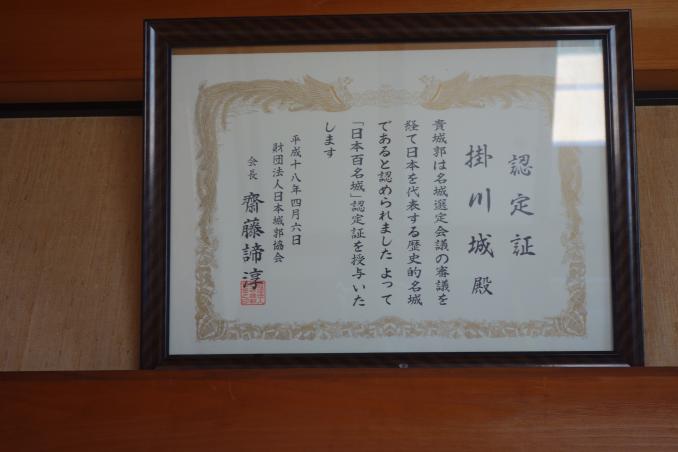 認定証
掛川城殿
貴城郭は名城選定会議の審議を
経て日本を代表する歴史的名城
であると認められました よって
「日本百名城」認定証を授与いた
します
平成十八年四月六日
財団法人日本城郭協会
会長 齋藤諦淳